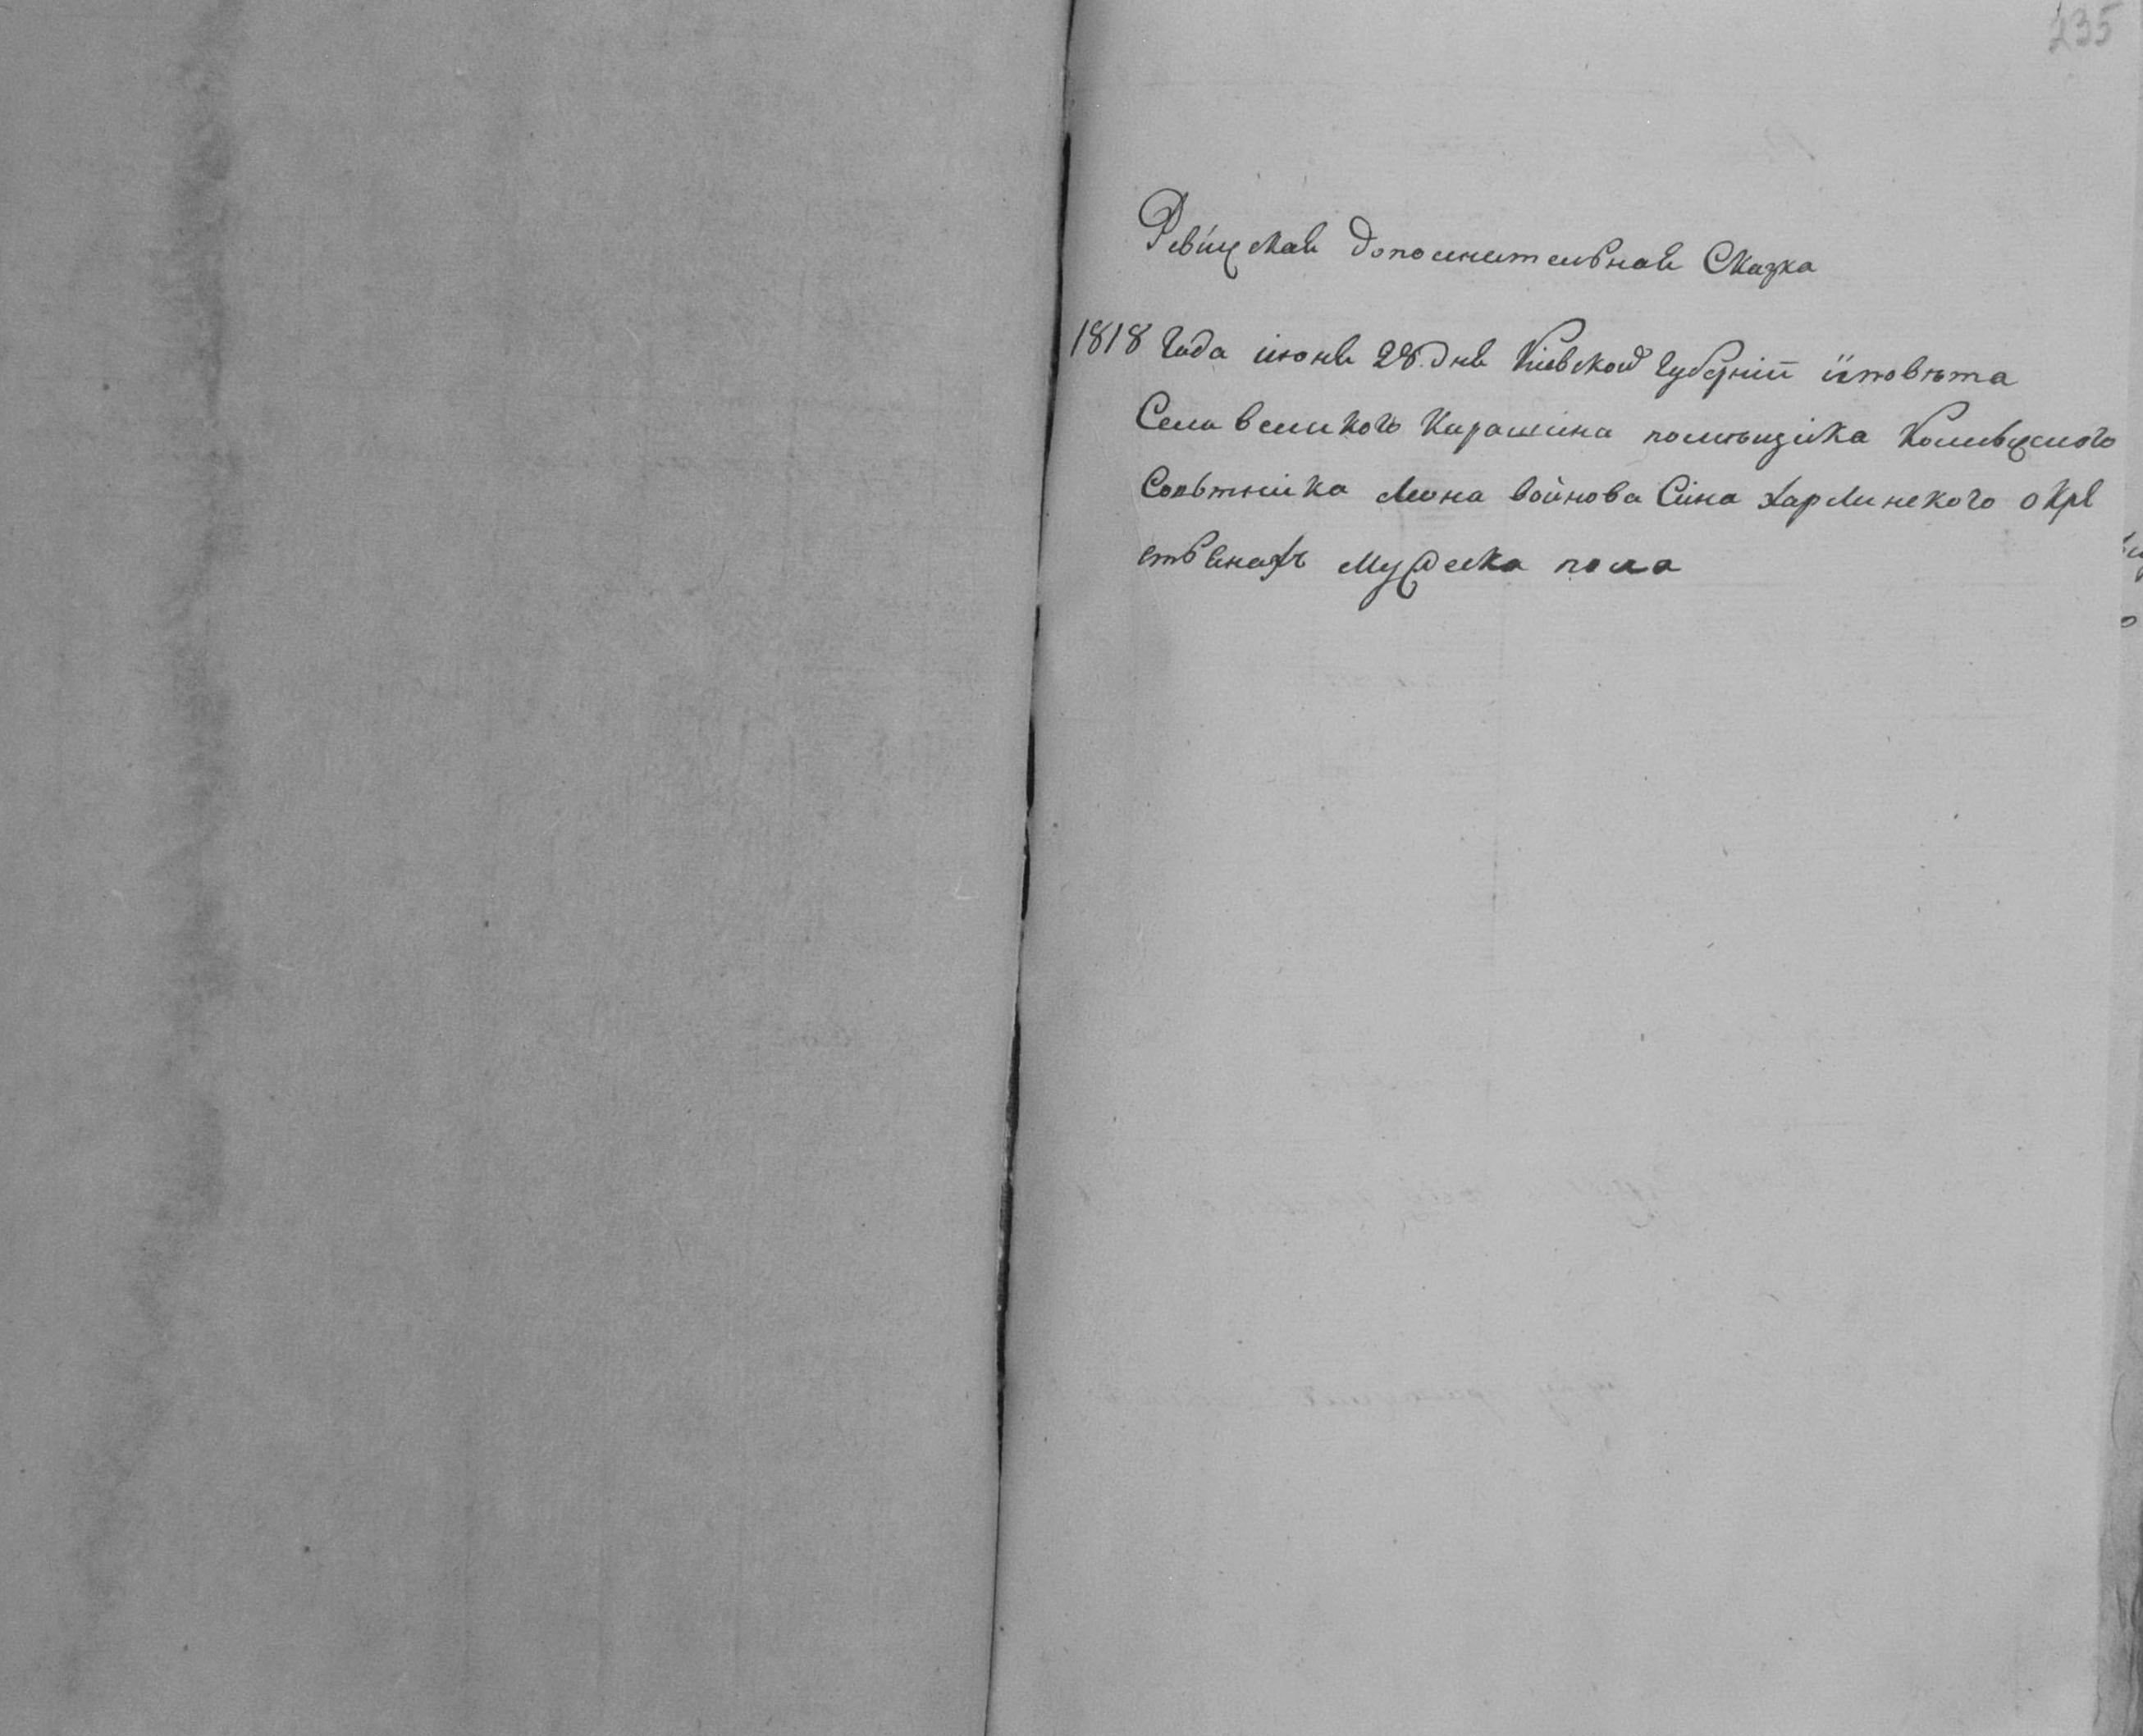 235
Ревизская дополнительная Сказка
1818 Года июня 28 дня Киевской Губернии и повѣта
Села Великого Карашина помѣщика Колежского
Совѣтника Леона Войнова Сина Харлинского о кре
стьянахъ Мужеска пола